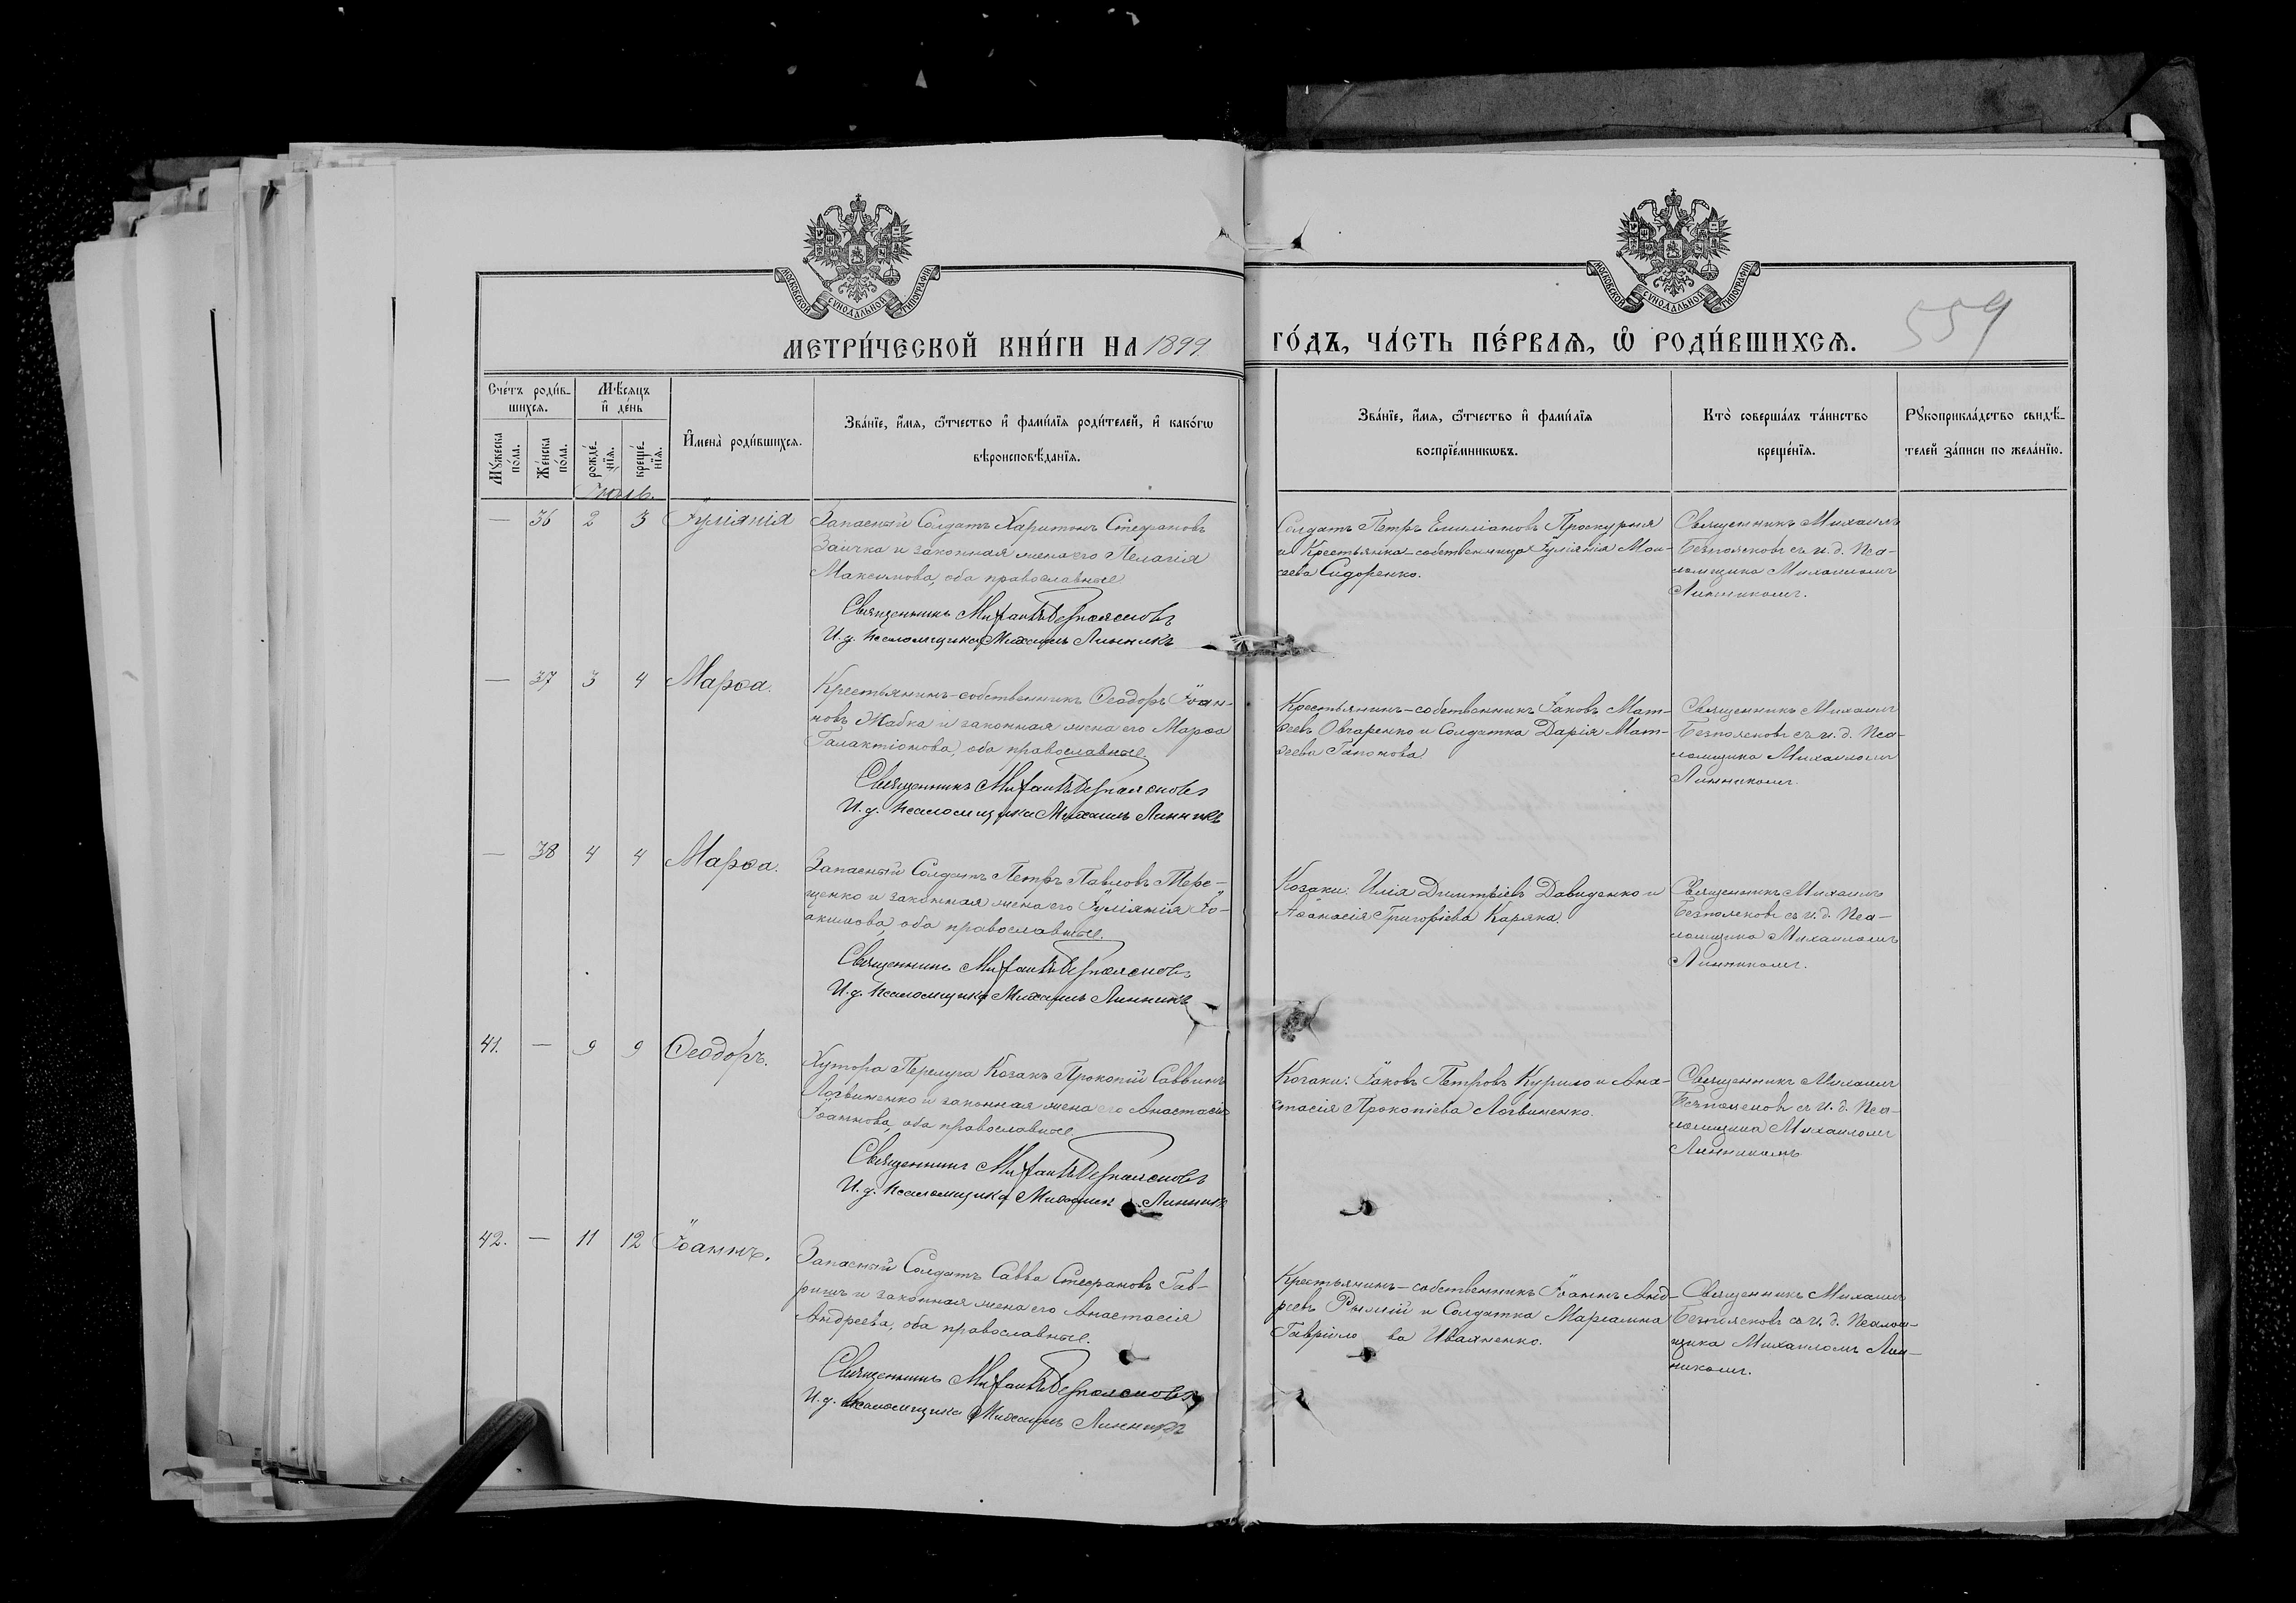 МОСКОВСКОЙ СѴНОДАЛЬНОЙ ТИПОГРАФІИ
МОСКОВСКОЙ СѴНОДАЛЬНОЙ ТИПОГРАФІИ
МЕТРИ́ЧЕСКОЙ КНИ́ГИ НА 1899
ГО́ДЪ, ЧА́СТЬ ПЕ́РВАѦ, Ѡ҆ РОДИ́ВШИХСѦ.
559
Сче́тъ роди́в-
шихся.
Мꙋ́жеска
по́ла.
Же́нска
по́ла.
Мѣ́сяцъ
и҆ де́нь
рожде́-
нїя.
креще́-
нїя.
И҆мена̀ роди́вшихся.
Зва́нїе, и҆́мя, ѻ҆́тчество и҆ фами́лїя роди́телей, и҆ како́гѡ
вѣроисповѣ́данїя.
Зва́нїе, и҆́мя, ѻ҆́тчество и҆ фами́лїя
воспрїе́мникѡвъ.
Кто̀ соверша́лъ та́инство
креще́нїя.
Рꙋкоприкла́дство свидѣ́-
телей за́писи по жела́нїю.
Іюль.
— 36 2 3 Іуліянія
Запасный Солдатъ Харитонъ Стефановъ
Заичка и законная жена его Пелагія
Максимова, оба православные
Священникъ Михаилъ Безпоясковъ
И. д. Псаломщика Михаилъ Линникъ
Солдатъ Петръ Емиліановъ Проскурня
и Крестьянка-собственница Іуліянія Мои-
сеева Сидоренко.
Священникъ Михаилъ
Безпоясковъ съ и. д. Пса-
ломщика Михаиломъ
Линникомъ.
— 37 3 4 Марѳа.
Крестьянинъ-собственникъ Ѳеодоръ Іоан-
новъ Жабка и законная жена его Марѳа
Галактіонова, оба православные.
Священникъ Михаилъ Безпоясковъ
И. д. Псаломщика Михаилъ Линникъ
Крестьянинъ-собственникъ Іаковъ Мат-
ѳеевъ Овчаренко и Солдатка Дарія Мат-
ѳеева Гапонова
Священникъ Михаилъ
Безпоясковъ съ и. д. Пса-
ломщика Михаиломъ
Линникомъ.
— 38 4 4 Марѳа.
Запасный Солдатъ Петръ Павловъ Тере-
щенко и законная жена его Іуліянія Іо-
акимова, оба православные.
Священникъ Михаилъ Безпоясковъ
И. д. Псаломщика Михаилъ Линникъ
Козаки: Илія Димитріевъ Давиденко и
Аѳанасія Григоріева Каряка.
Священникъ Михаилъ
Безпоясковъ съ и. д. Пса-
ломщика Михаиломъ
Линникомъ.
41. — 9 9 Ѳеодоръ.
Хутора Перелуга Козакъ Прокопій Саввинъ
Логвиненко и законная жена его Анастасія
Іоаннова, оба православные
Священникъ Михаилъ Безпоясковъ
И. д. Псаломщика Михаилъ Линникъ
Козаки: Іаковъ Петровъ Курило и Ана-
стасія Прокопіева Логвиненко.
Священникъ Михаилъ
Безпоясковъ съ и. д. Пса-
ломщика Михаиломъ
Линникомъ
42. — 11 12 Іоаннъ.
Запасный Солдатъ Савва Стефановъ Гав-
ришъ и законная жена его Анастасія
Андреева, оба православные.
Священникъ Михаилъ Безпоясковъ
И. д. Псаломщика Михаилъ Линникъ
Крестьянинъ-собственникъ Іоаннъ Анд-
реевъ и Солдатка Маріамна
Гавріило ва Ивахненко.
Священникъ Михаилъ
Безпоясковъ съ и. д. Псалом-
щика Михаиломъ Лин-
никомъ.